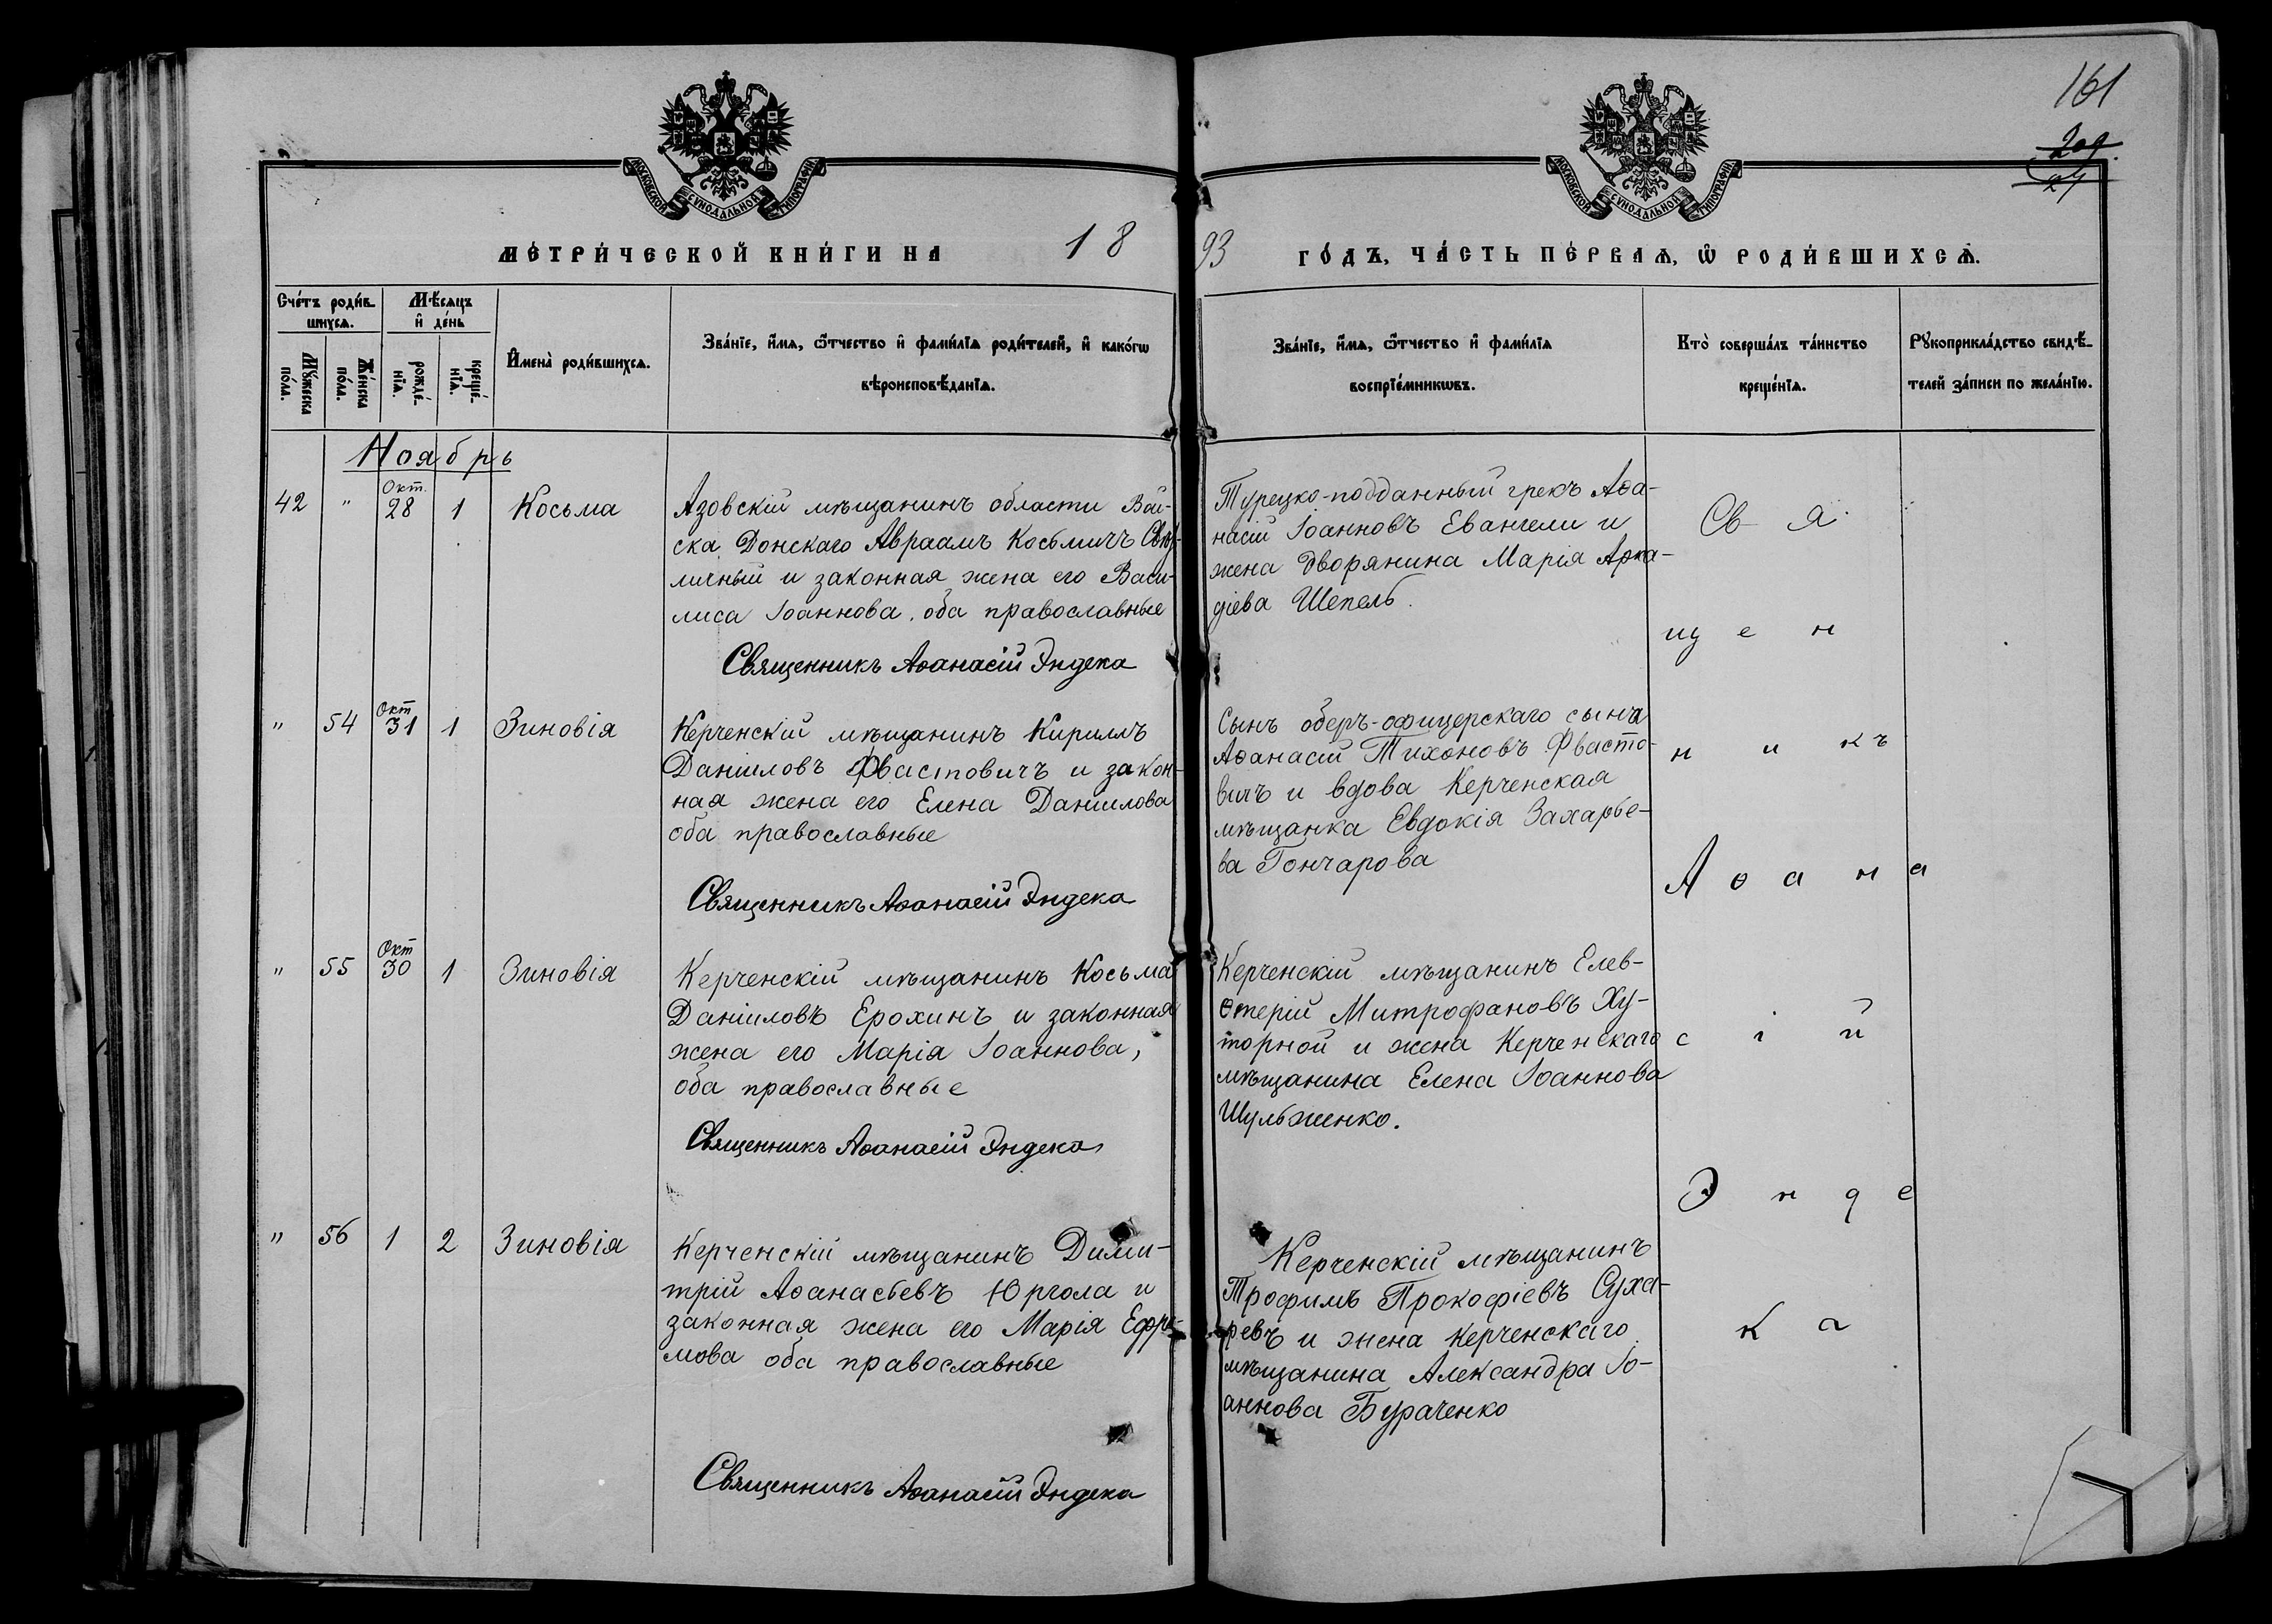 161
209
МОСКОВСКОЙ СѴНОДАЛЬНОЙ ТИПОГРАФІИ
МОСКОВСКОЙ СѴНОДАЛЬНОЙ ТИПОГРАФІИ
МЕТРИ́ЧЕСКОЙ КНИ́ГИ НА 18
93 ГО́ДЪ, ЧА́СТЬ ПЕ́РВАѦ, Ѡ РОДИ́ВШИХСѦ.
Сче́тъ роди́в-
шихсѧ.
Мꙋ́жеска
по́ла.
Же́нска
по́ла.
Мѣ́сяцъ
и҆ де́нь
рожде́-
нїѧ.
креще́-
нїѧ.
И҆мена̀ роди́вшихсѧ.
Зва́нїе, и҆́мѧ, ѻ҆́тчество и҆ фами́лїѧ роди́телей, и҆ како́гѡ
вѣроисповѣ́данїѧ.
Зва́нїе, и҆́мѧ, ѻ҆́тчество и҆ фами́лїѧ
воспрїе́мникѡвъ.
Кто̀ соверша́лъ та́инство
креще́нїѧ.
Рꙋкоприкла́дство свидѣ́-
телей за́писи по жела́нїю.
Ноябрь
42 " Окт. 28 1 Косьма
Азовскій мѣщанинъ области Вой-
ска Донскаго Авраамъ Косьмичъ
личный и законная жена его Васи-
лиса Іоаннова, оба православные
Священникъ Аѳанасій Эндека
Турецко-подданный грекъ Аѳа-
насій Іоанновъ Евангели и
жена дворянина Марія Арка-
діева Шепель.
" 54 Окт 31 1 Зиновія
Керченскій мѣщанинъ Кириллъ
Даніиловъ Фвастовичъ и закон-
ная жена его Елена Даніилова
оба православные
Священникъ Аѳанасій Эндека
Сынъ оберъ-офицерскаго сына
Аѳанасій Тихоновъ Фвасто-
вичъ и вдова Керченская
мѣщанка Евдокія Захарье-
ва Гончарова
" 55 Окт 30 1 Зиновія
Керченскій мѣщанинъ Косьма
Даніиловъ Ерохинъ и законная
жена его Марія Іоаннова,
оба православные
Священникъ Аѳанасій Эндека
Керченскій мѣщанинъ Елев-
ѳтерій Митрофановъ Ху-
торной и жена Керченскаго
мѣщанина Елена Іоаннова
Шульженко.
" 56 1 2 Зиновія
Керченскій мѣщанинъ Дими-
трій Аѳанасьевъ Юргола и
законная жена его Марія Ефре-
мова оба православные
Священникъ Аѳанасій Эндека
Керченскій мѣщанинъ
Трофимъ Прокофіевъ Суха-
ревъ и жена Керченскаго
мѣщанина Александра Іо-
аннова Бураченко
Свя
щен
никъ
Аѳана
сій
Энде
ка